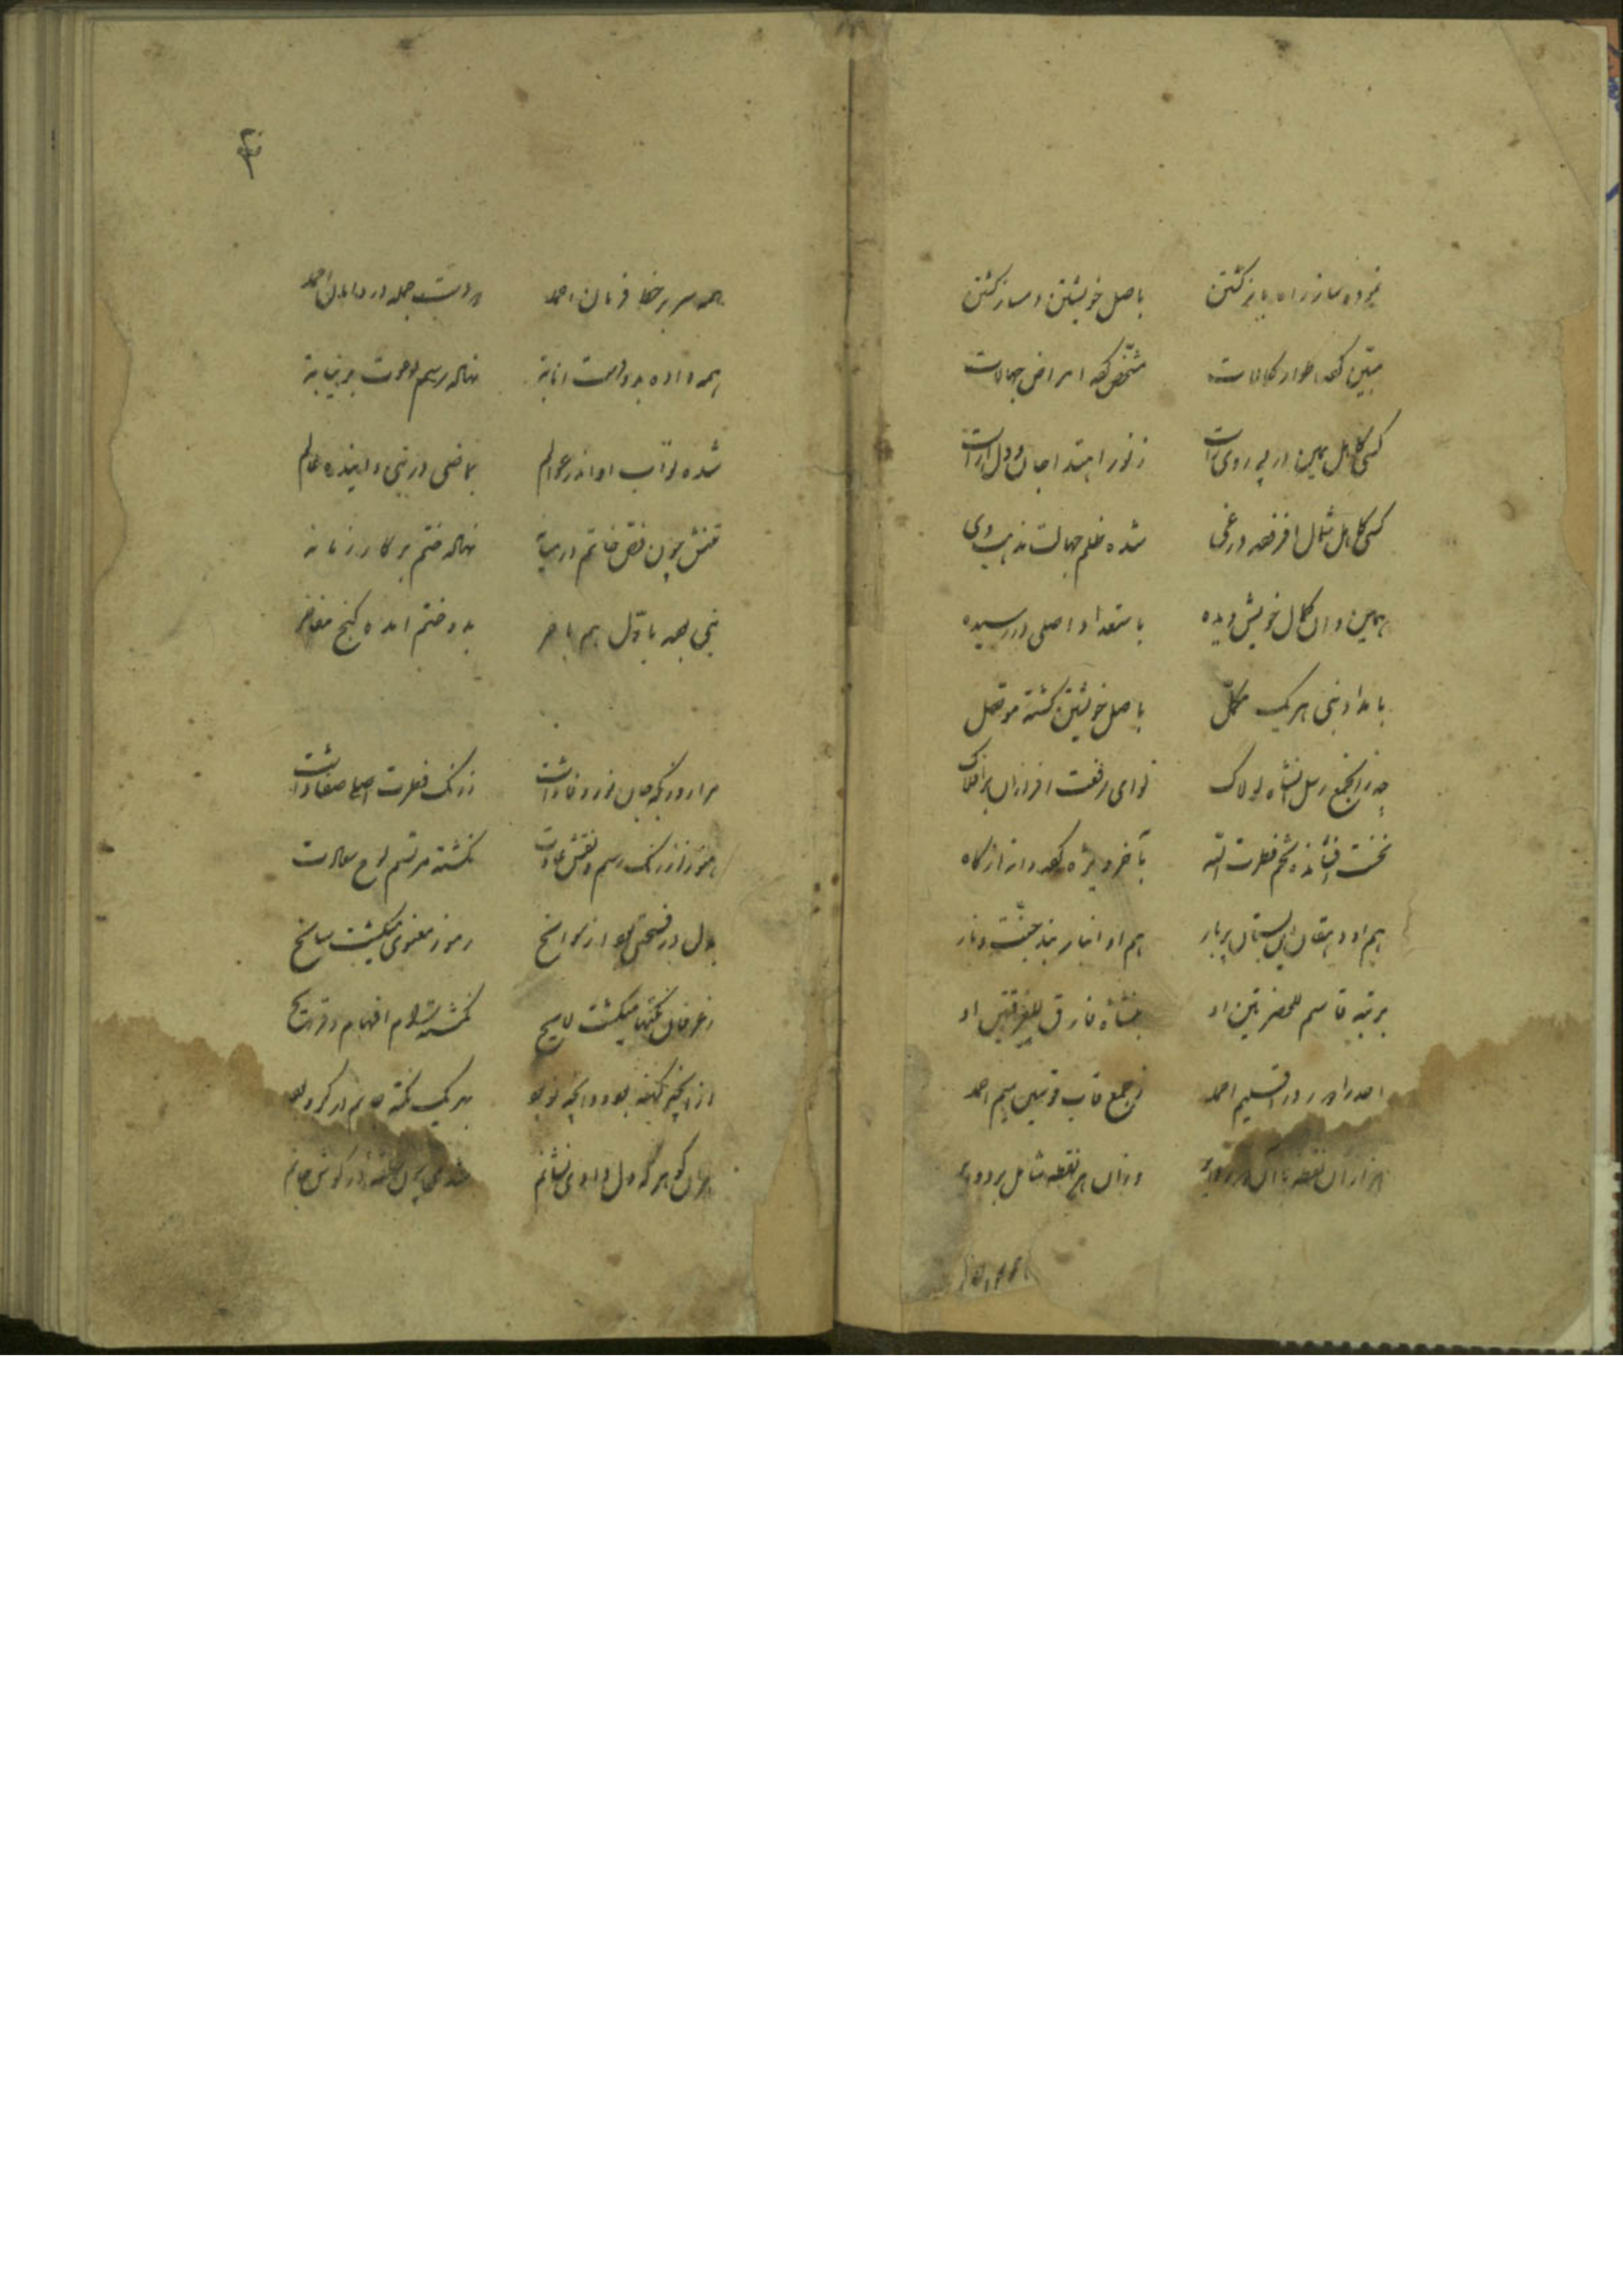 نموده ساز راه باز گشتن باصل خویشتن دمساز گشتن
مبین کرده اطوار کمالات مشخص کرده امراض جهالات
کسی کامل همین در پیروی راست ز نور اهتدا جان و دل آراست
کسی کاهل مثال افزوده در غی شده ظلم جهالت مذهب وی
همین دان کمال خویش دیده باستعداد اصلی در رسیده
بامداد نبی هر یک مکمل باصل خویشتن گشته موصل
رسل شاه لولاک لوای رفعت افرازان بر افلاک
نخست افشانده تخم فطرت الله بآخر
هم او دهقان این بستان پربار هم او انبار بند جنت و نار
برتبه قاسم للحضرتین او فارق للفرقتین او
احد را در تسلیم احمد ز جمع قاب قوسین میم احمد
هزاران نقطه وزان هر نقطه شامل بر
۳
همه سر بر خط فرمان احمد دو دست جمله در دامان احمد
همه داده بدو دست انابه نهاده رسم دعوت بر نیابه
شده نواب او اندر عوالم بماضی در نبی و آینده عالم
تنش چون فص خاتم در میانه نهاده ختم بر کار زمانه
نبی بوده باول هم بآخر بدو ختم آمده گنج مفاخر
مرا روزیکه جان نور وفا داشت ز رنگ فطرت اصلی صفا داشت
هنوز از رنگ رسم و نقش عادت نگشته مرتسم لوح سعادت
بدل در فتحی بود از نوافح رموز معنوی میگشت سانح
ز عرفان نکتها میگشت لایح افهام و قرایح
از آنچه گفته بود و آنچه نو بود بهر یک نکته جانم در گرو بود
هران گوهر که دل دادی نشانم شدی چون حلقه در گوش جانم